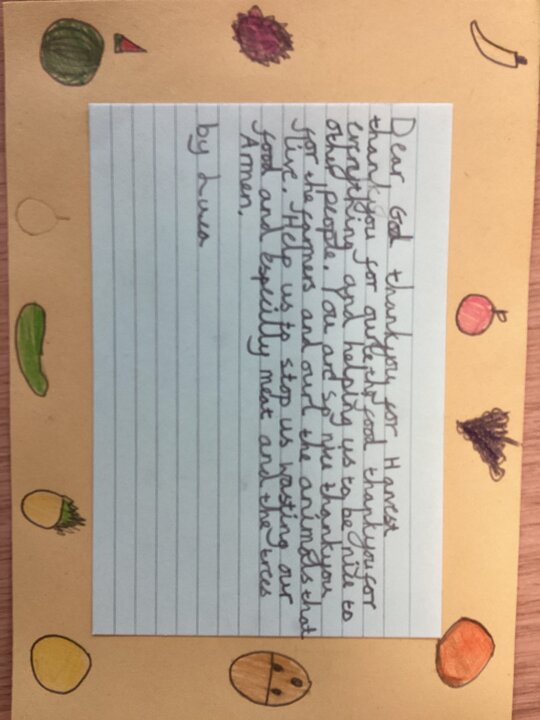 Dear God thankyou for Harvest
thankyou for our the food thankyou for
everything and helping us to be nice to
other people. You are so nice thankyou
for the farmers and the animals that
live. Help us to stop us wasting our
food and especilly meat and the trees
Armen.
by